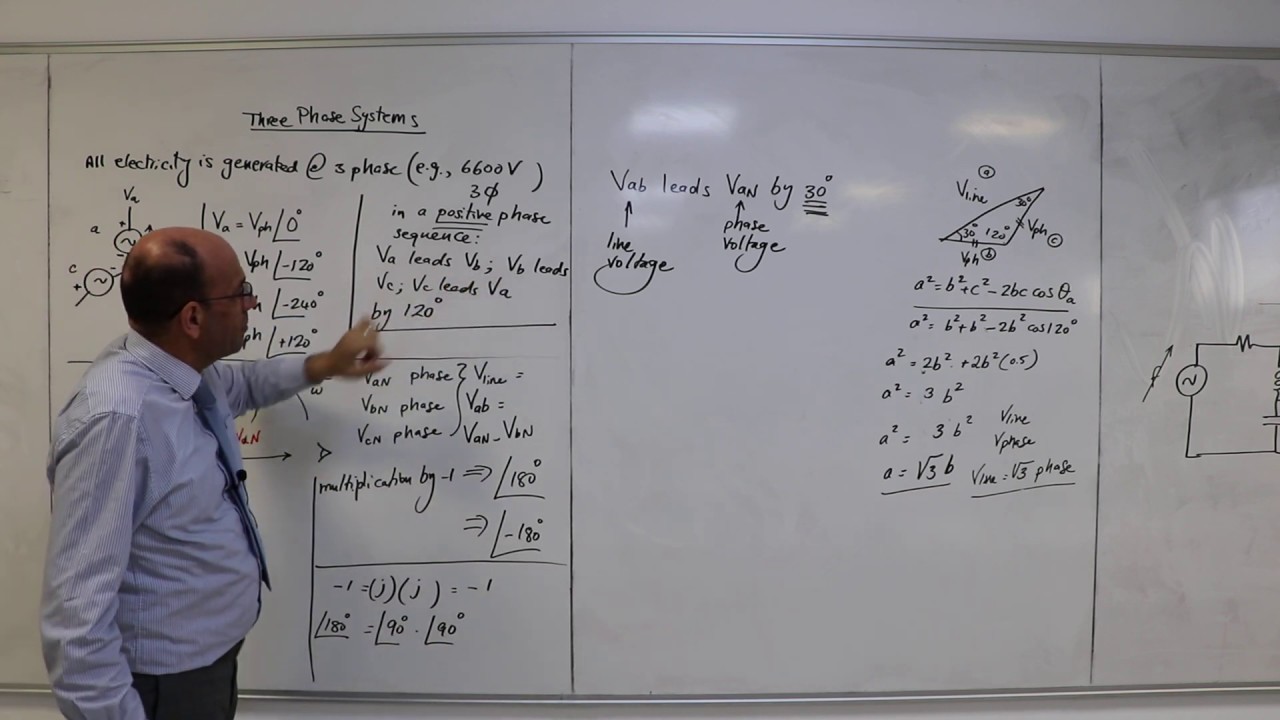 Three Phase Systems
All electricity is generated @ 3 phase (e.g., 6600V)
3φ
Va
a
c
+
+
Va = Vph ∠0°
Vph ∠-120°
∠-240°
ph ∠+120°
in a positive phase
sequence:
Va leads Vb; Vb leads
Vc; Vc leads Va
by 120°
ω
VaN
VaN phase } Vline =
VbN phase } Vab =
VcN phase } VaN - VbN
multiplication by -1 ⇒ ∠180°
⇒ ∠-180°
-1 = (j)(j) = -1
∠180° = ∠90° . ∠90°
Vab leads VaN by 30°
↑ ↑
line voltage
phase voltage
a
Vline
30°
30° 120°
Vph c
Vph b
a² = b² + c² - 2bc cos θa
a² = b² + b² - 2b² cos 120°
a² = 2b² + 2b² (0.5)
a² = 3 b²
a² = 3b²
Vline
Vphase
a = √3 b
Vline = √3 phase